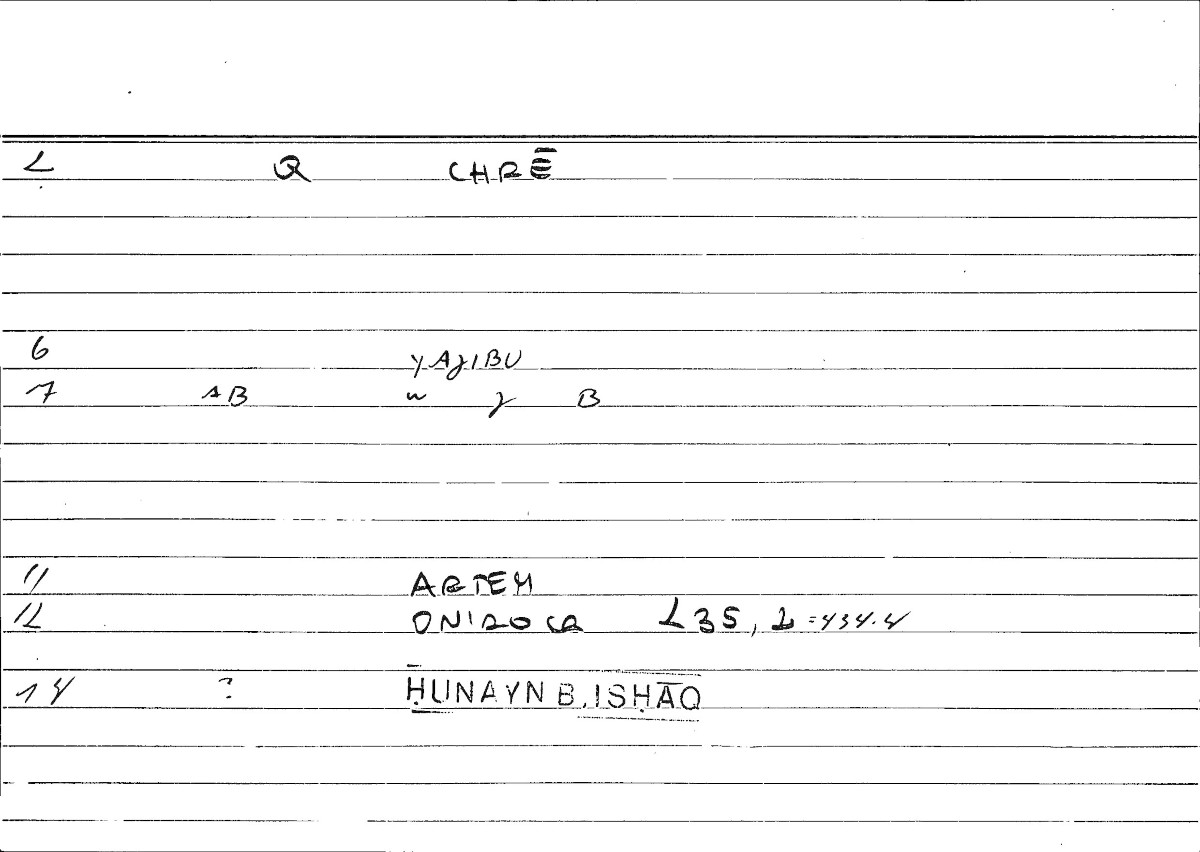 2 Q CHRĒ
6 YAJIBU
7 AB w J B
11 ARTEM
12 ONIROCR 235, 2 = 434.4
14 ? ḤUNAYN B. ISḤĀQ